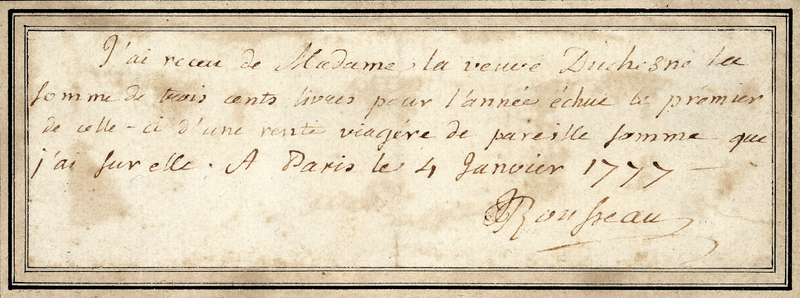 J'ai receu de Madame la veuve Duchesne la
somme de trois cents livres pour l'année échue le premier
de celle-ci d'une rente viagére de pareille somme que
j'ai sur elle. A Paris le 4 Janvier 1777
JJRousseau